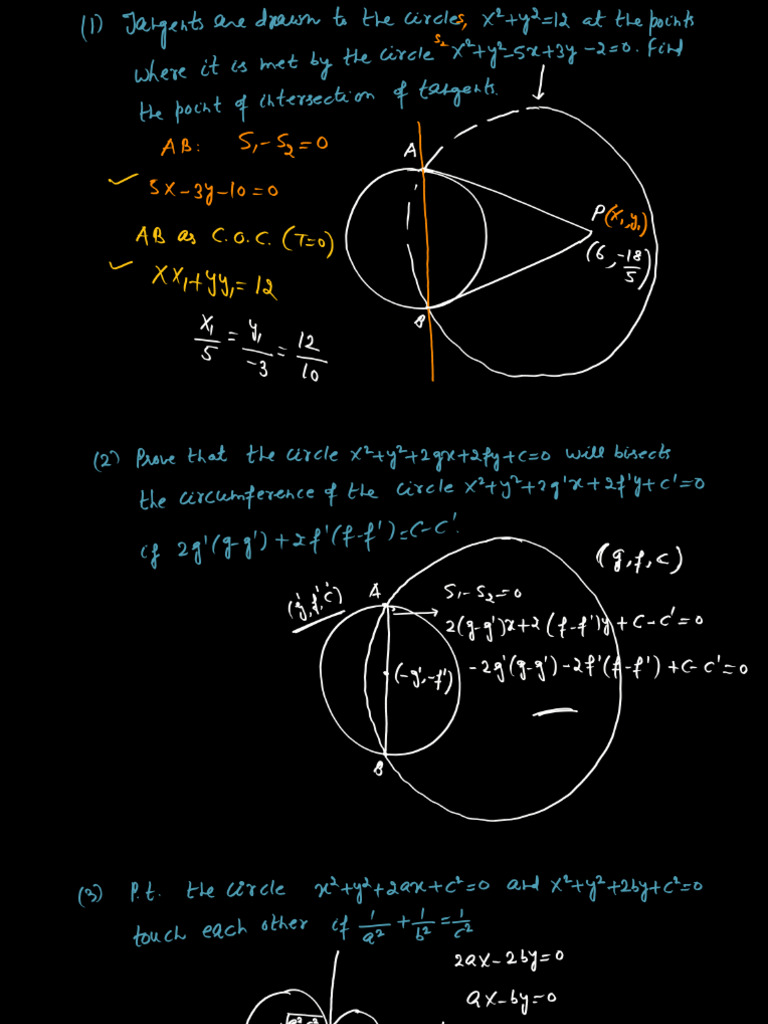 (1) Tangents are drawn to the circle S₁ x²+y²=12 at the points
where it is met by the circle S₂ x²+y²-5x+3y-2=0. Find
the point of intersection of tangents.
AB: S₁-S₂=0
5x-3y-10=0
AB as C.O.C. (T=0)
xx₁+yy₁=12
x₁/5 = y₁/-3 = 12/10
A
B
P(x₁,y₁)
(6, -18/5)
(2) Prove that the circle x²+y²+2gx+2fy+c=0 will bisects
the circumference of the circle x²+y²+2g'x+2f'y+c'=0
if 2g'(g-g')+2f'(f-f')=c-c'.
(g,f,c)
(g',f',c')
A
S₁-S₂=0
2(g-g')x+2(f-f')y+c-c'=0
(-g',-f')
-2g'(g-g')-2f'(f-f')+c-c'=0
B
(3) P.t. the circle x²+y²+2ax+c²=0 and x²+y²+2by+c²=0
touch each other if 1/a²+1/b²=1/c²
2ax-2by=0
ax-by=0